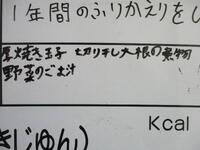 1年間のふりかえりをし
厚焼き玉子 切り干し大根の煮物
野菜のごま汁
Kcal
きじゅん)